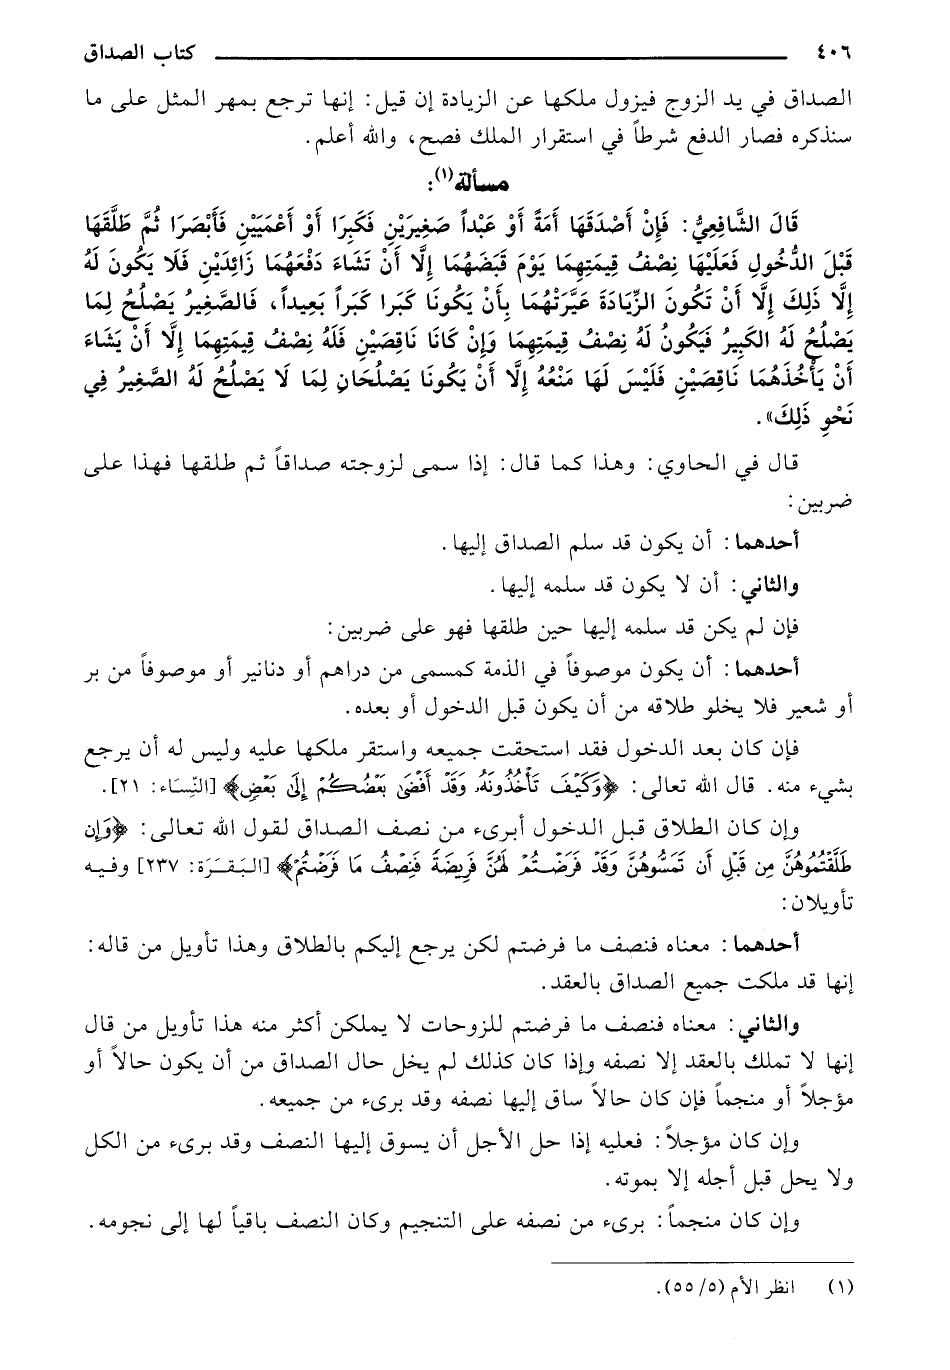 ٤٠٦ كتاب الصداق
الصداق في يد الزوج فيزول ملكها عن الزيادة إن قيل: إنها ترجع بمهر المثل على ما
سنذكره فصار الدفع شرطاً في استقرار الملك فصح، والله أعلم.
مسألة(١):
قَالَ الشَّافِعِيُّ: فَإِنْ أَصْدَقَهَا أَمَةً أَوْ عَبْداً صَغِيرَيْنِ فَكَبِرَا أَوْ أَعْمَيَيْنِ فَأَبْصَرَا ثُمَّ طَلَّقَهَا
قَبْلَ الدُّخُولِ فَعَلَيْهَا نِصْفُ قِيمَتِهِمَا يَوْمَ قَبَضَهُمَا إِلَّا أَنْ تَشَاءَ دَفْعَهُمَا زَائِدَيْنِ فَلَا يَكُونَ لَهُ
إِلَّا ذَلِكَ إِلَّا أَنْ تَكُونَ الزِّيَادَةَ غَيَّرَتْهُمَا بِأَنْ يَكُونَا كَبَرا كَبَراً بَعِيداً، فَالصَّغِيرُ يَصْلُحُ لِمَا
يَصْلُحُ لَهُ الكَبِيرُ فَيَكُونُ لَهُ نِصْفُ قِيمَتِهِمَا وَإِنْ كَانَا نَاقِصَيْنِ فَلَهُ نِصْفُ قِيمَتِهِمَا إِلَّا أَنْ يَشَاءَ
أَنْ يَأْخُذَهُمَا نَاقِصَيْنِ فَلَيْسَ لَهَا مَنْعُهُ إِلَّا أَنْ يَكُونَا يَصْلُحَانِ لِمَا لَا يَصْلُحُ لَهُ الصَّغِيرُ فِي
نَحْوِ ذَلِكَ».
قال في الحاوي: وهذا كما قال: إذا سمى لزوجته صداقاً ثم طلقها فهذا على
ضربين:
أحدهما: أن يكون قد سلم الصداق إليها.
والثاني: أن لا يكون قد سلمه إليها.
فإن لم يكن قد سلمه إليها حين طلقها فهو على ضربين:
أحدهما: أن يكون موصوفاً في الذمة كمسمى من دراهم أو دنانير أو موصوفاً من بر
أو شعير فلا يخلو طلاقه من أن يكون قبل الدخول أو بعده.
فإن كان بعد الدخول فقد استحقت جميعه واستقر ملكها عليه وليس له أن يرجع
بشيء منه. قال الله تعالى: ﴿وَكَيْفَ تَأْخُذُونَهُ وَقَدْ أَفْضَىٰ بَعْضُكُمْ إِلَىٰ بَعْضٍ﴾ [النِّسَاء: ٢١].
وإن كان الطلاق قبل الدخول أبرىء من نصف الصداق لقول الله تعالى: ﴿وَإِن
طَلَّقْتُمُوهُنَّ مِن قَبْلِ أَن تَمَسُّوهُنَّ وَقَدْ فَرَضْتُمْ لَهُنَّ فَرِيضَةً فَنِصْفُ مَا فَرَضْتُمْ﴾ [البَقَرَة: ٢٣٧] وفيه
تأويلان:
أحدهما: معناه فنصف ما فرضتم لكن يرجع إليكم بالطلاق وهذا تأويل من قاله:
إنها قد ملكت جميع الصداق بالعقد.
والثاني: معناه فنصف ما فرضتم للزوجات لا يملكن أكثر منه هذا تأويل من قال
إنها لا تملك بالعقد إلا نصفه وإذا كان كذلك لم يخل حال الصداق من أن يكون حالاً أو
مؤجلاً أو منجماً فإن كان حالاً ساق إليها نصفه وقد برىء من جميعه.
وإن كان مؤجلاً: فعليه إذا حل الأجل أن يسوق إليها النصف وقد برىء من الكل
ولا يحل قبل أجله إلا بموته.
وإن كان منجماً: برىء من نصفه على التنجيم وكان النصف باقياً لها إلى نجومه.
(١) انظر الأم (٥/ ٥٥).